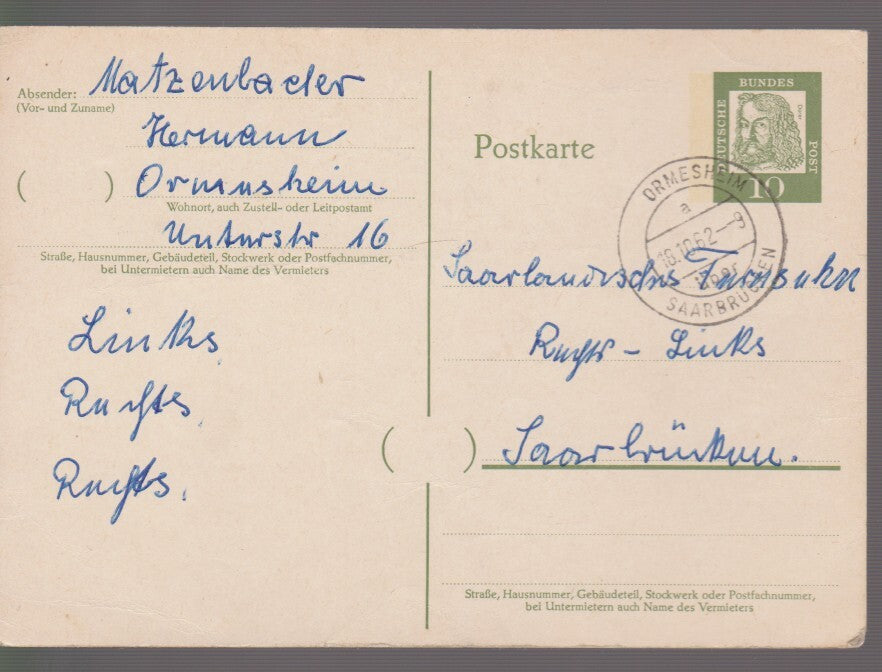 Absender: Matzenbacher
(Vor- und Zuname)
Hermann
( ) Ormesheim
Wohnort, auch Zustell- oder Leitpostamt
Unterstr 16
Straße, Hausnummer, Gebäudeteil, Stockwerk oder Postfachnummer,
bei Untermietern auch Name des Vermieters
Links
Rechts
Rechts.
Postkarte
DEUTSCHE BUNDES POST
Dürer
10
ORMESHEIM
a
18.10.62-9
über
SAARBRÜCKEN
Saarländisches Fernsehn
Rechts - Links
( ) Saarbrücken.
Straße, Hausnummer, Gebäudeteil, Stockwerk oder Postfachnummer,
bei Untermietern auch Name des Vermieters